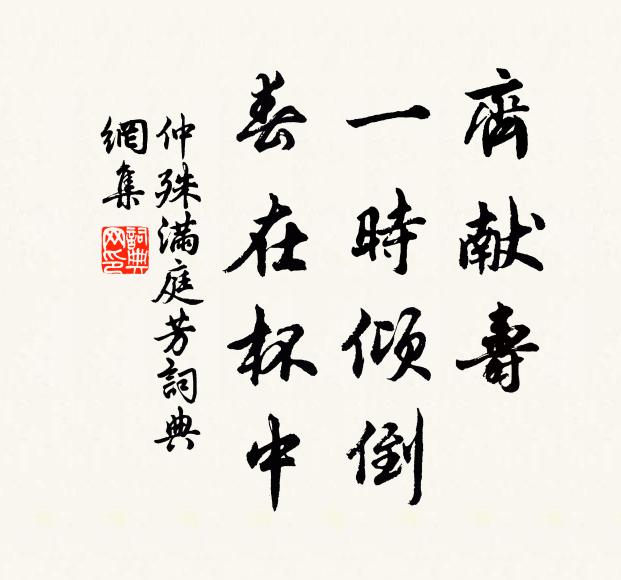 齊献壽
一時傾倒
春在杯中
仲殊滿庭芳詞典
網集
詞典
网印